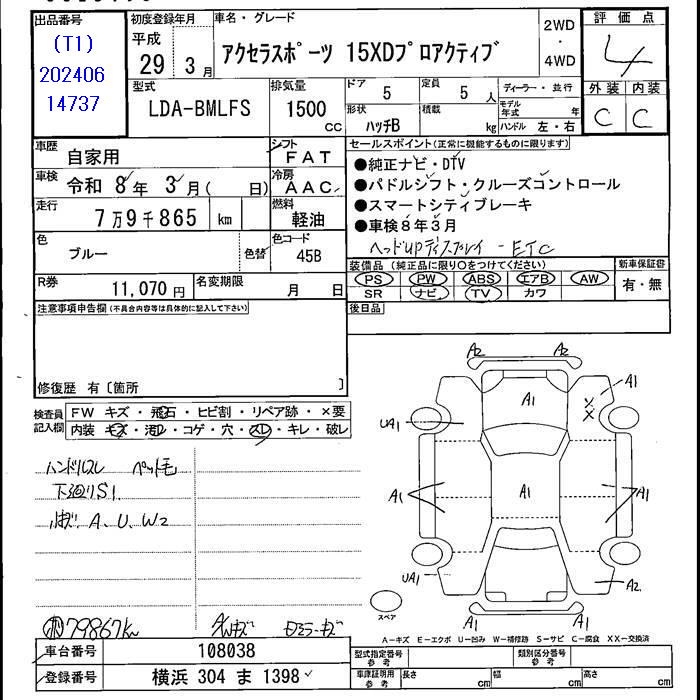 出品番号
(T1)
202406
14737
初度登録年月
平成
29年 3月
車名・グレード
アクセラスポーツ 15XDプロアクティブ
2WD
・
4WD
評価点
4
外装 内装
C C
型式
LDA-BMLFS
排気量
1500
cc
ドア
5
定員
5人
形状
ハッチB
積載
kg
ディーラー・並行
モデル年式 年
ハンドル 左・右
車歴
自家用
シフト
FAT
車検
令和 8年 3月( 日)
冷房
AAC
走行
7万9千865 km
燃料
軽油
色
ブルー
色替
色コード
45B
R券
11,070円
名変期限
月 日
セールスポイント(正常に機能するものに限ります)
●純正ナビ・DTV
●パドルシフト・クルーズコントロール
●スマートシティブレーキ
●車検8年3月
ヘッドUPディスプレイ - ETC
装備品(純正品に限り○をつけてください)
PS PW ABS エアB AW
SR ナビ TV カワ
新車保証書
有・無
後日品
注意事項申告欄(不具合内容等は具体的に記入して下さい)
修復歴 有〔箇所 〕
検査員
記入欄
FW キズ・飛石・ヒビ割・リペア跡・×要
内装 キズ・汚レ・コゲ・穴・スレ・キレ・破レ
ハンドルスレ ペット毛
下廻りS1
A、U、W2
79867km
A2 A2
A1
A1
UA1
A1
A1
A1
UA1
A2
A1 A1
スペア
A-キズ E-エクボ U-凹み W-補修跡 S-サビ C-腐食 XX-交換済
車台番号
108038
登録番号
横浜 304 ま 1398
型式指定番号
参考
類別区分番号
参考
車庫証明用
参考
長さ cm
幅 cm
高さ cm